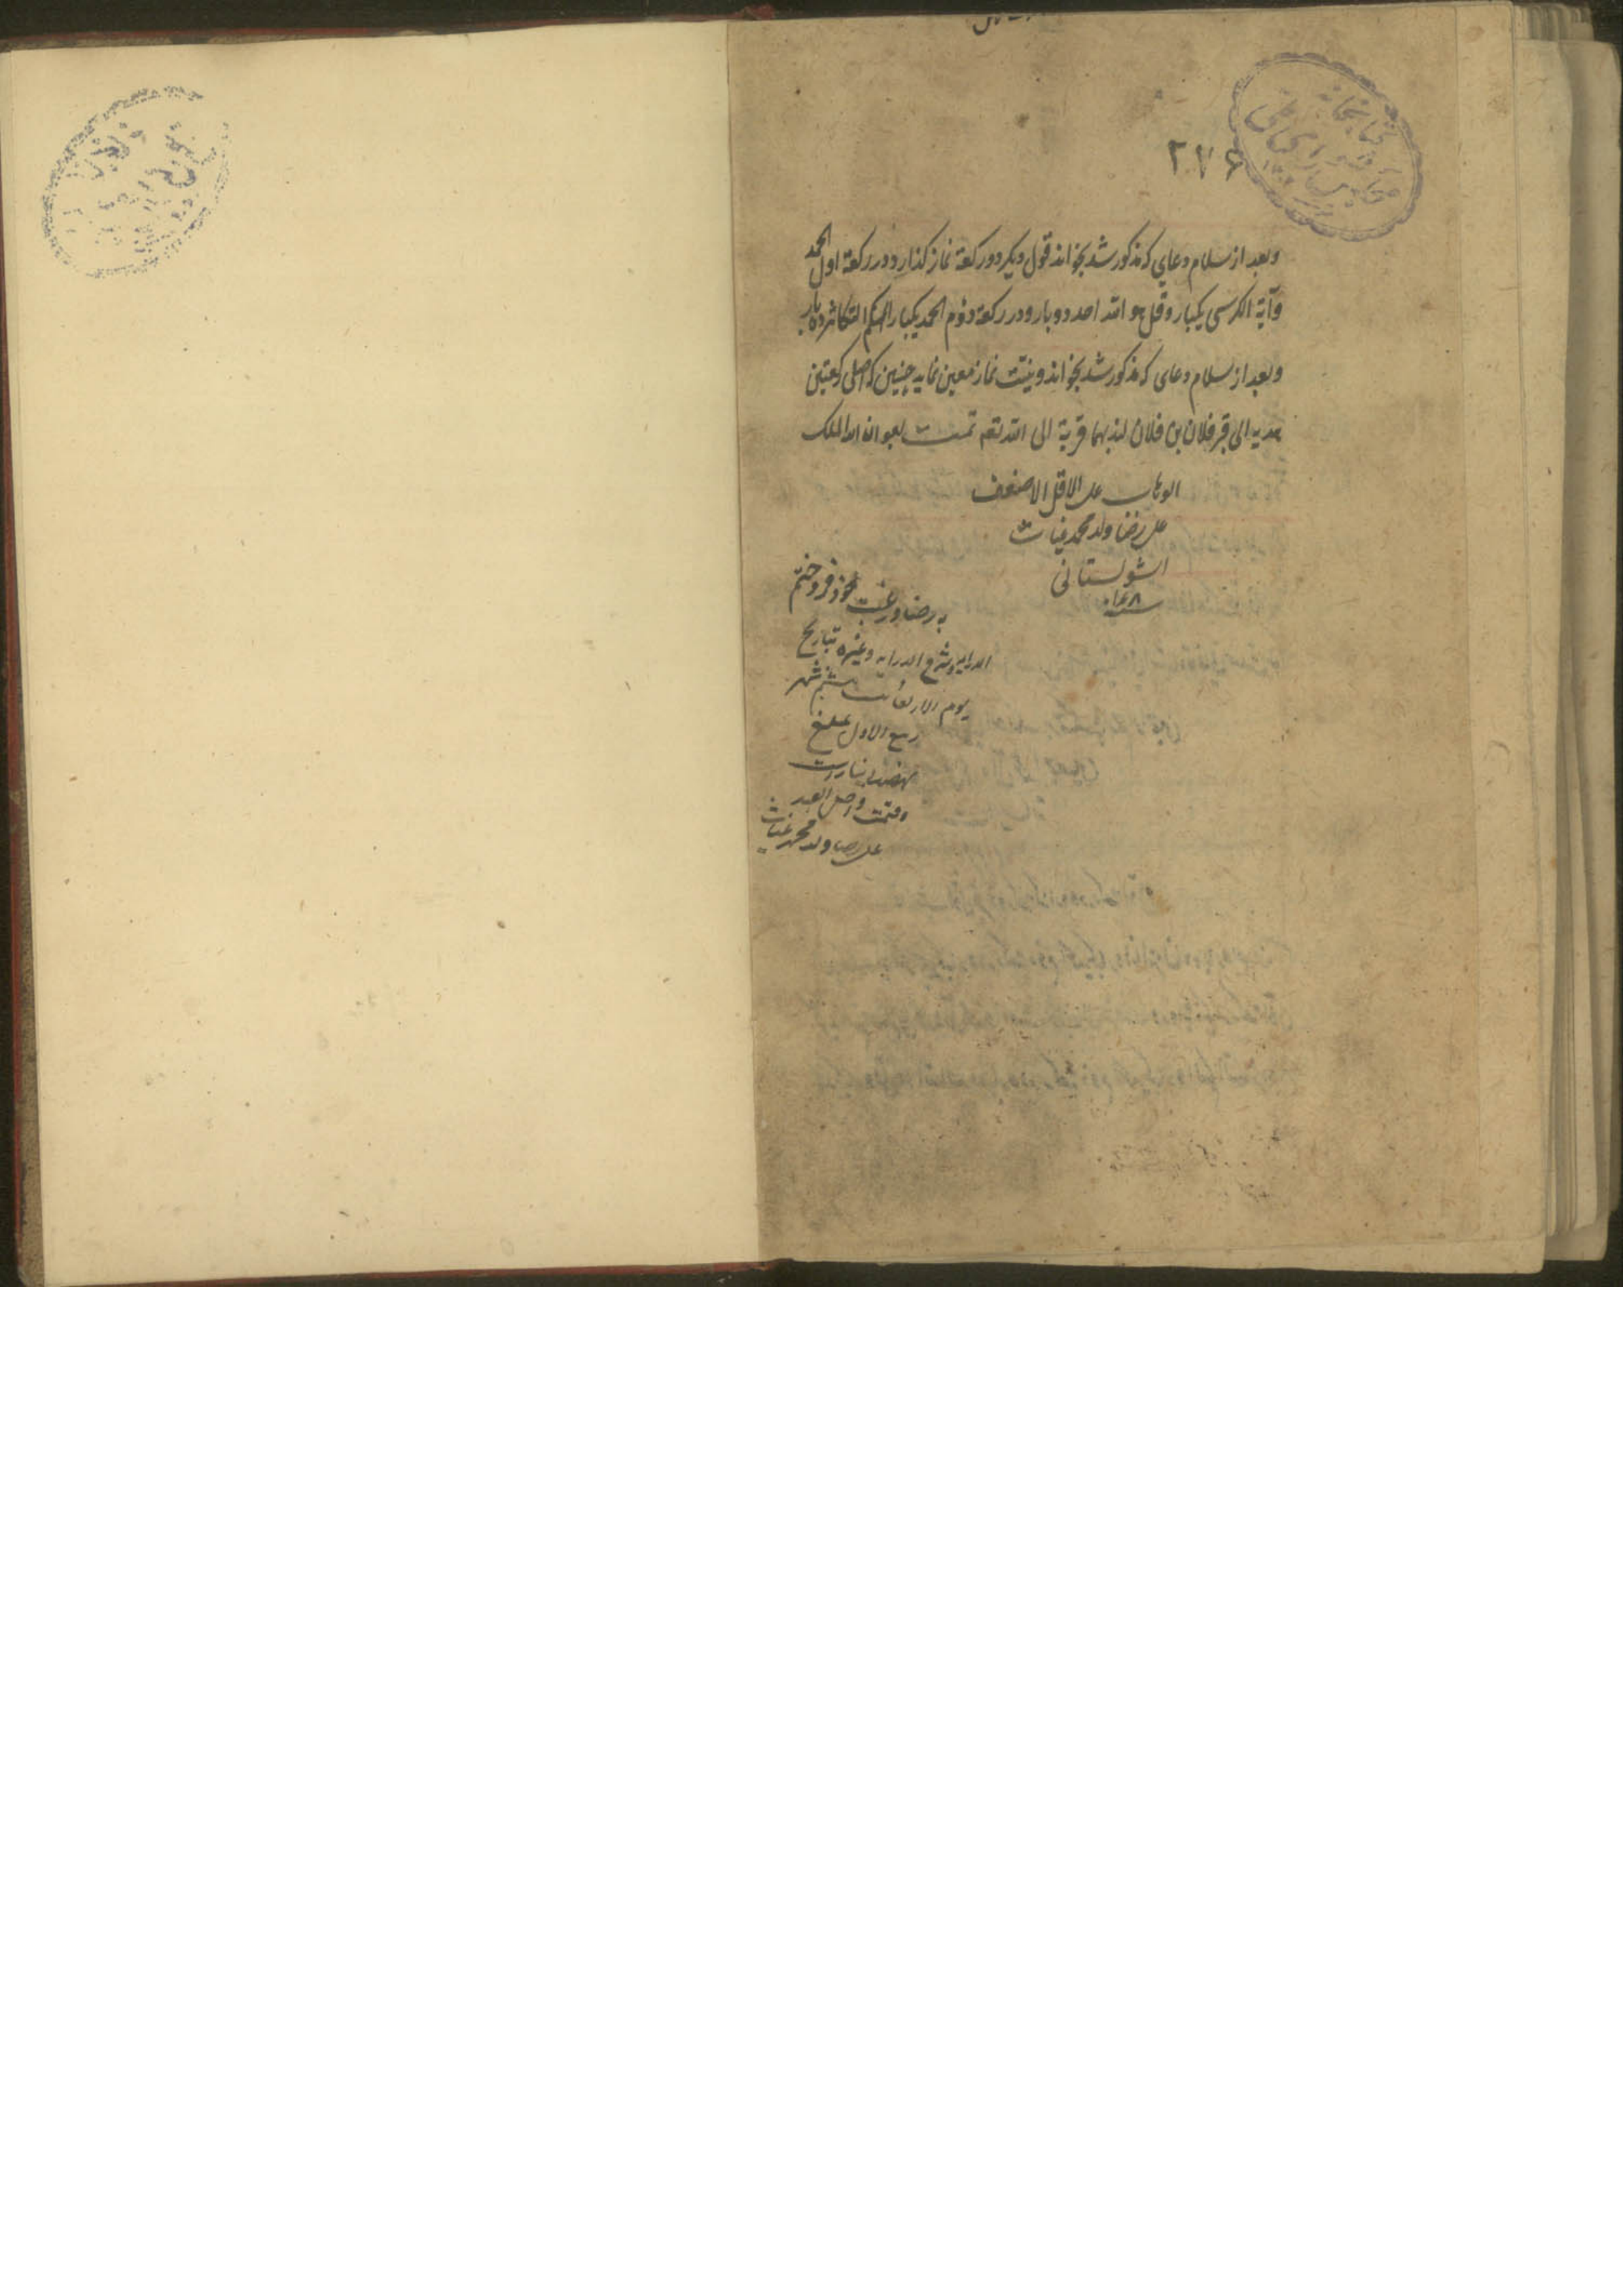 ۲۷۶
وبعد از سلام دعای که مذکور شد بخواند قول دیکر دو رکعة نماز کذارد و در رکعة اول الحمد
وآیة الکرسی یکبار و قل هو الله احد دو بار و در رکعة دوم الحمد یکبار الهیکم التکاثر ده بار
وبعد از سلام دعای که مذکور شد بخواند و نیت نماز معین نماید چنین که اصلی رکعتین
هدیه الی قبر فلان بن فلان لندبهما قربة الی الله تعه تمت بعون الله الملک
الوهاب علی الاقل الاضعف
علی رضا ولد محمد غیاث
الشولستانی
به رضا و رغبت خود فروختم
الدرایه و شرح الدرایه و غیره بتاریخ
یوم الاربعا شهر
ربیع الاول مبلغ
العبد
علی رضا ولد محمد غیاث